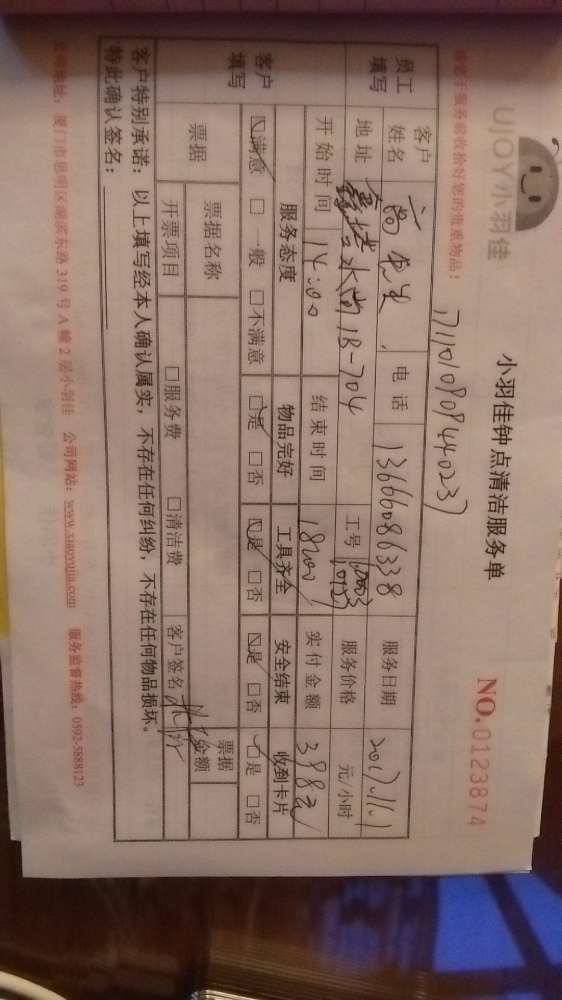 UJOY小羽佳
小羽佳钟点清洁服务单
NO.0123874
请您于服务前收拾好您的贵重物品！
17110108094440237
员工填写
客户姓名
电话 13666086338
服务日期 2017.11.1
地址 水尚1B-704
工号
服务价格 元/小时
开始时间 14:00
结束时间 18:00
实付金额 398元
客户填写
服务态度 物品完好 工具齐全 安全结束 收到卡片
☑满意 □一般 □不满意 ☑是 □否 ☑是 □否 ☑是 □否 ☑是 □否
票据 票据名称 票据金额
开票项目 □服务费 □清洁费 客户签名
客户特别承诺：以上填写经本人确认属实，不存在任何纠纷，不存在任何物品损坏。
特此确认签名：
公司地址：厦门市思明区湖滨东路319号A幢2层小羽佳 公司网站：www.xiaoyujia.com 服务监督热线：0592-5888123